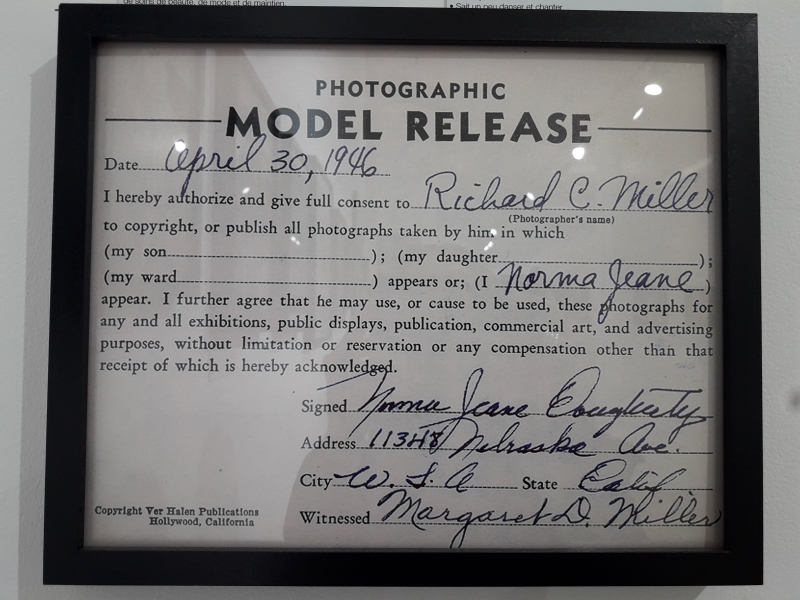 de soins de beauté, de mode et de maintien.
• Sait un peu danser et chanter
PHOTOGRAPHIC
MODEL RELEASE
Date April 30, 1946
I hereby authorize and give full consent to Richard C. Miller
(Photographer's name)
to copyright, or publish all photographs taken by him in which
(my son ); (my daughter );
(my ward ) appears or; (I Norma Jeane )
appear. I further agree that he may use, or cause to be used, these photographs for
any and all exhibitions, public displays, publication, commercial art, and advertising
purposes, without limitation or reservation or any compensation other than that
receipt of which is hereby acknowledged.
Signed Norma Jeane Dougherty
Address 11348 Nebraska Ave.
City W. L. A State Calif
Witnessed Margaret D. Miller
Copyright Ver Halen Publications
Hollywood, California